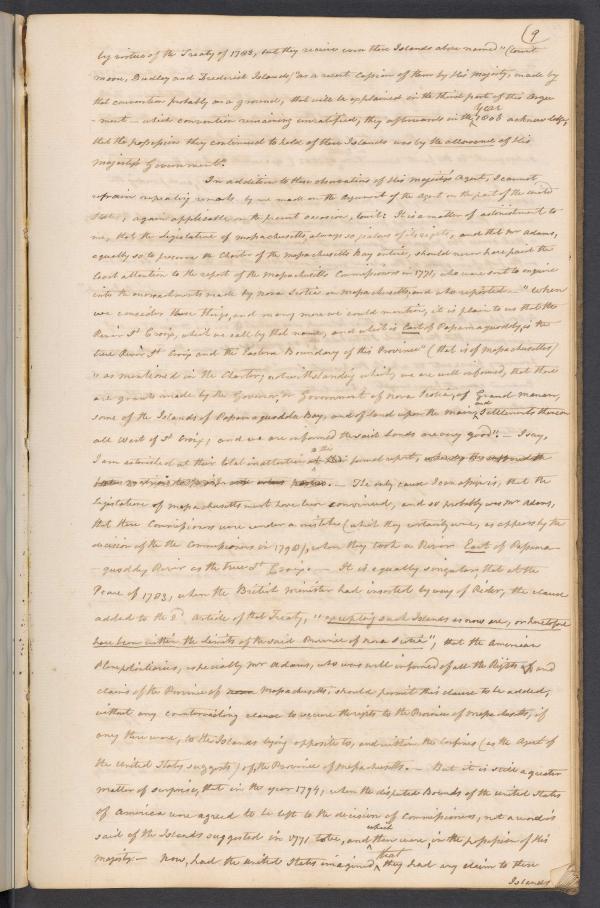 (9
by virtue of the Treaty of 1783, but they receive even these Islands above named" (Court
moon, Dudley and Frederick Islands) "as a recent Cession of them by His Majesty, made by
that convention probably on a ground, that will be explained in the third part of this argu
-ment – which convention remaining unratified, they afterwards in the year 1808 acknowledge,
that the possession they continued to hold of these Islands was by the allowance of His
Majesty's Government."
In addition to these observations of His Majesty's Agent, I cannot
refrain repeating remarks by me made on the Argument of the Agent on the part of the United
States, again applicable on the present occasion, to wit: It is a matter of astonishment to
me, that the Legislature of Massachusetts, always so jealous of its rights, and that Mr Adams,
equally so, to preserve the Charter of the Massachusetts Bay entire, should never have paid the
least attention to the report of the Massachusetts Commissioners in 1771, who were sent to enquire
into the encroachments made by Nova Scotia on Massachusetts, and who reported – "When
we consider these things, and many more we could mention, it is plain to us that the
River St Croix, which we call by that name, and which is East of Passamaquoddy, is the
true River St Croix and the Eastern Boundary of this Province" (that is of Massachusetts)
"as mentioned in the Charter; notwithstanding which, we are well informed, that there
are grants made by the Governor, or Government of Nova Scotia, of Grand Manan,
some of the Islands of Passamaquodda Bay, and of land upon the main, and Settlements thereon
all West of St Croix; and we are informed the said Lands are very good". – I say,
I am astonished at their total inattention to this formal report,
– The only cause I can assign is, that the
Legislature of Massachusetts must have been convinced, and so probably was Mr Adams,
that these Commissioners were under a mistake (which they certainly were, as appears by the
decision of the the Commissioners in 1798), when they took a River East of Passama
-quoddy River as the true St Croix. – It is equally singular, that at the
Peace of 1783, when the British Minister had inserted by way of Rider, the clause
added to the 2d. Article of that Treaty, "excepting such Islands as now are, or heretofore
have been within the limits of the said Province of Nova Scotia"; that the American
Plenipotentiaries, especially Mr Adams, who was well informed of all the Rights of, and
claims of the Province of Massachusetts, should permit this clause to be added,
without any countervailing clause to secure the rights to the Province of Massachusetts, if
any there were, to the Islands lying opposite to, and within the Confines (as the Agent of
the United States suggests) of the Province of Massachusetts. – But it is still a greater
matter of surprise, that in the year 1794, when the disputed Bounds of the United States
of America were agreed to be left to the decision of Commissioners, not a word is
said of the Islands suggested in 1771 to be, and which then were, in the possession of His
Majesty. – Now, had the United States imagined that they had any claim to these
Islands